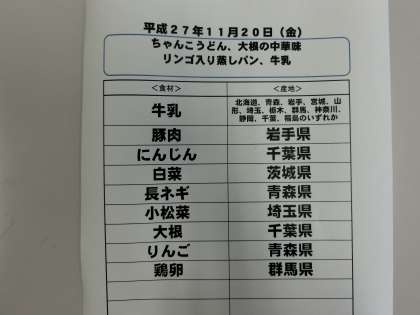 平成27年11月20日（金）
ちゃんこうどん、大根の中華味
リンゴ入り蒸しパン、牛乳
＜食材＞ ＜産地＞
牛乳 北海道、青森、岩手、宮城、山
形、埼玉、栃木、群馬、神奈川、
静岡、千葉、福島のいずれか
豚肉 岩手県
にんじん 千葉県
白菜 茨城県
長ネギ 青森県
小松菜 埼玉県
大根 千葉県
りんご 青森県
鶏卵 群馬県